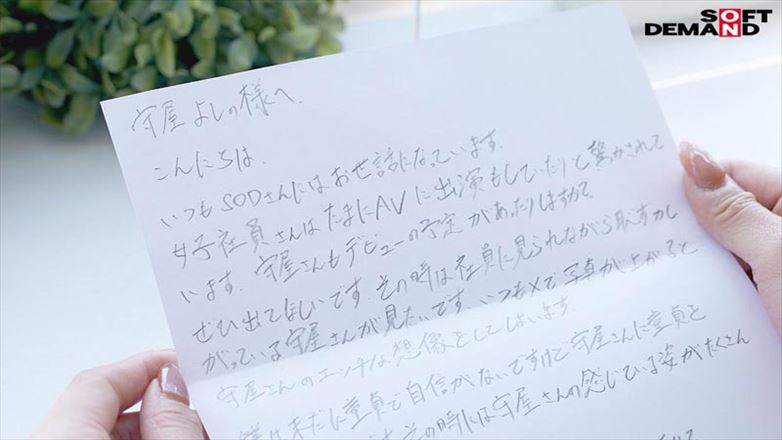 SOFT
DEMAND
守屋よしの様へ
こんにちは。
いつもSODさんにはお世話になっています。
女子社員さんはたまにAVに出演もしていたりと驚かされて
います。守屋さんもデビューの予定があったりはすか?
ぜひ出てほしいです。その時は社員に見られながら恥ずかし
がっている守屋さんが見たいです。いつもXで写真が上がると
守屋さんのエッチな想像をしてしまいます。
僕は未だに童貞で自信がないですけど守屋さんに童貞を
その時には守屋さんの感じている姿がたくさん